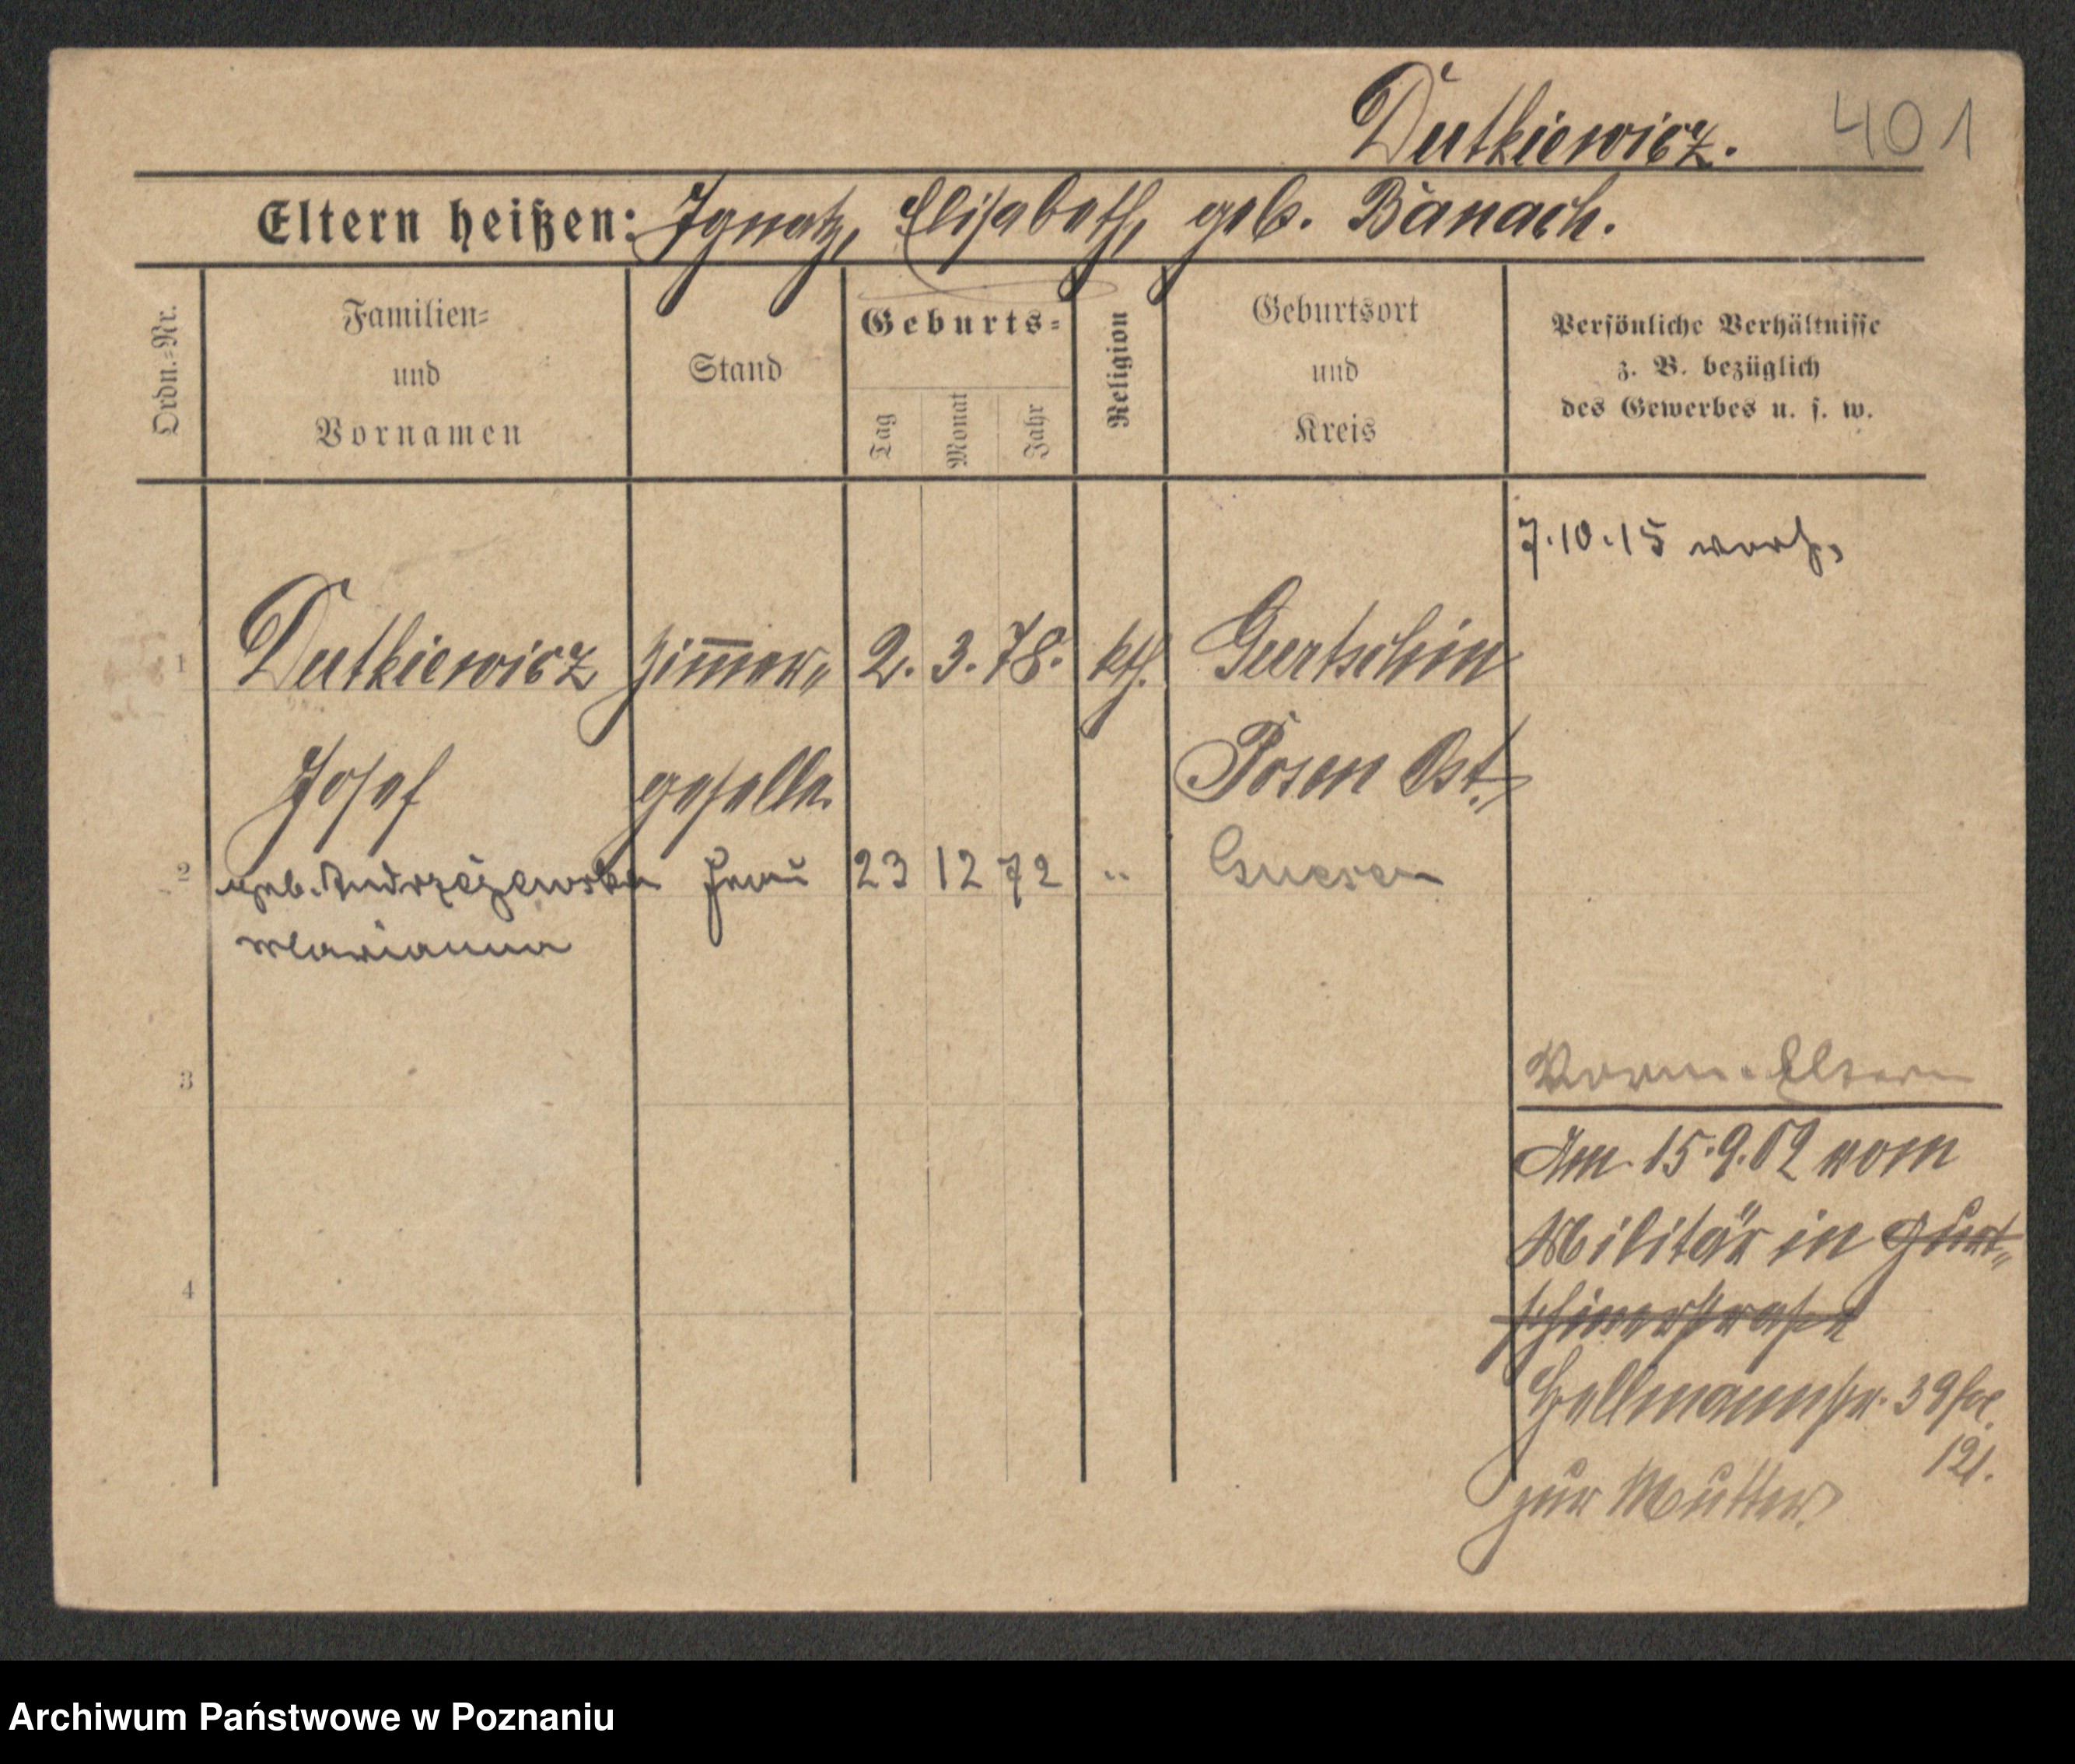 Dutkiewicz. 401
Eltern heißen: Ignatz, Elisabeth, geb. Banach.
Ordn.=Nr.
Familien=
und
Vornamen
Stand
Geburts=
Tag
Monat
Jahr
Religion
Geburtsort
und
Kreis
Persönliche Verhältnisse
z. B. bezüglich
des Gewerbes u. s. w.
7.10.15 verh.
1 Dutkiewicz Zim̅er„ 2. 3. 78. kth. Gurtschin
Josef geselle. Posen Ost.
2 geb. Andrzejewska Frau 23 12 72 " Gnesen
Marianna
3
Eltern
Am 15.9.02 vom
Militär in Gurt„
schinerstraße
4
Hellmannstr. 39 fol.
121.
zur Mutter.
Archiwum Państwowe w Poznaniu